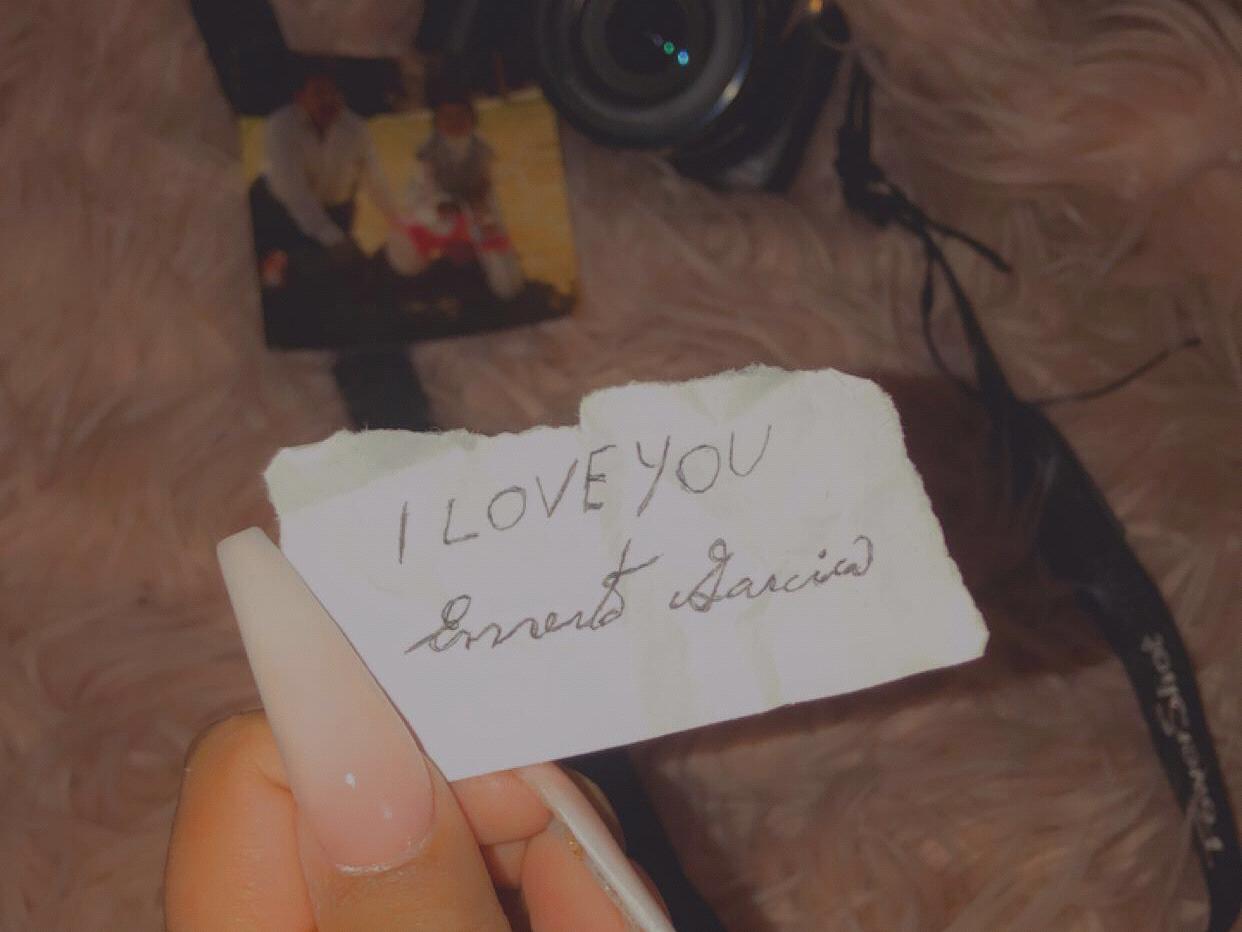 I LOVE YOU
Ernesto Garcia